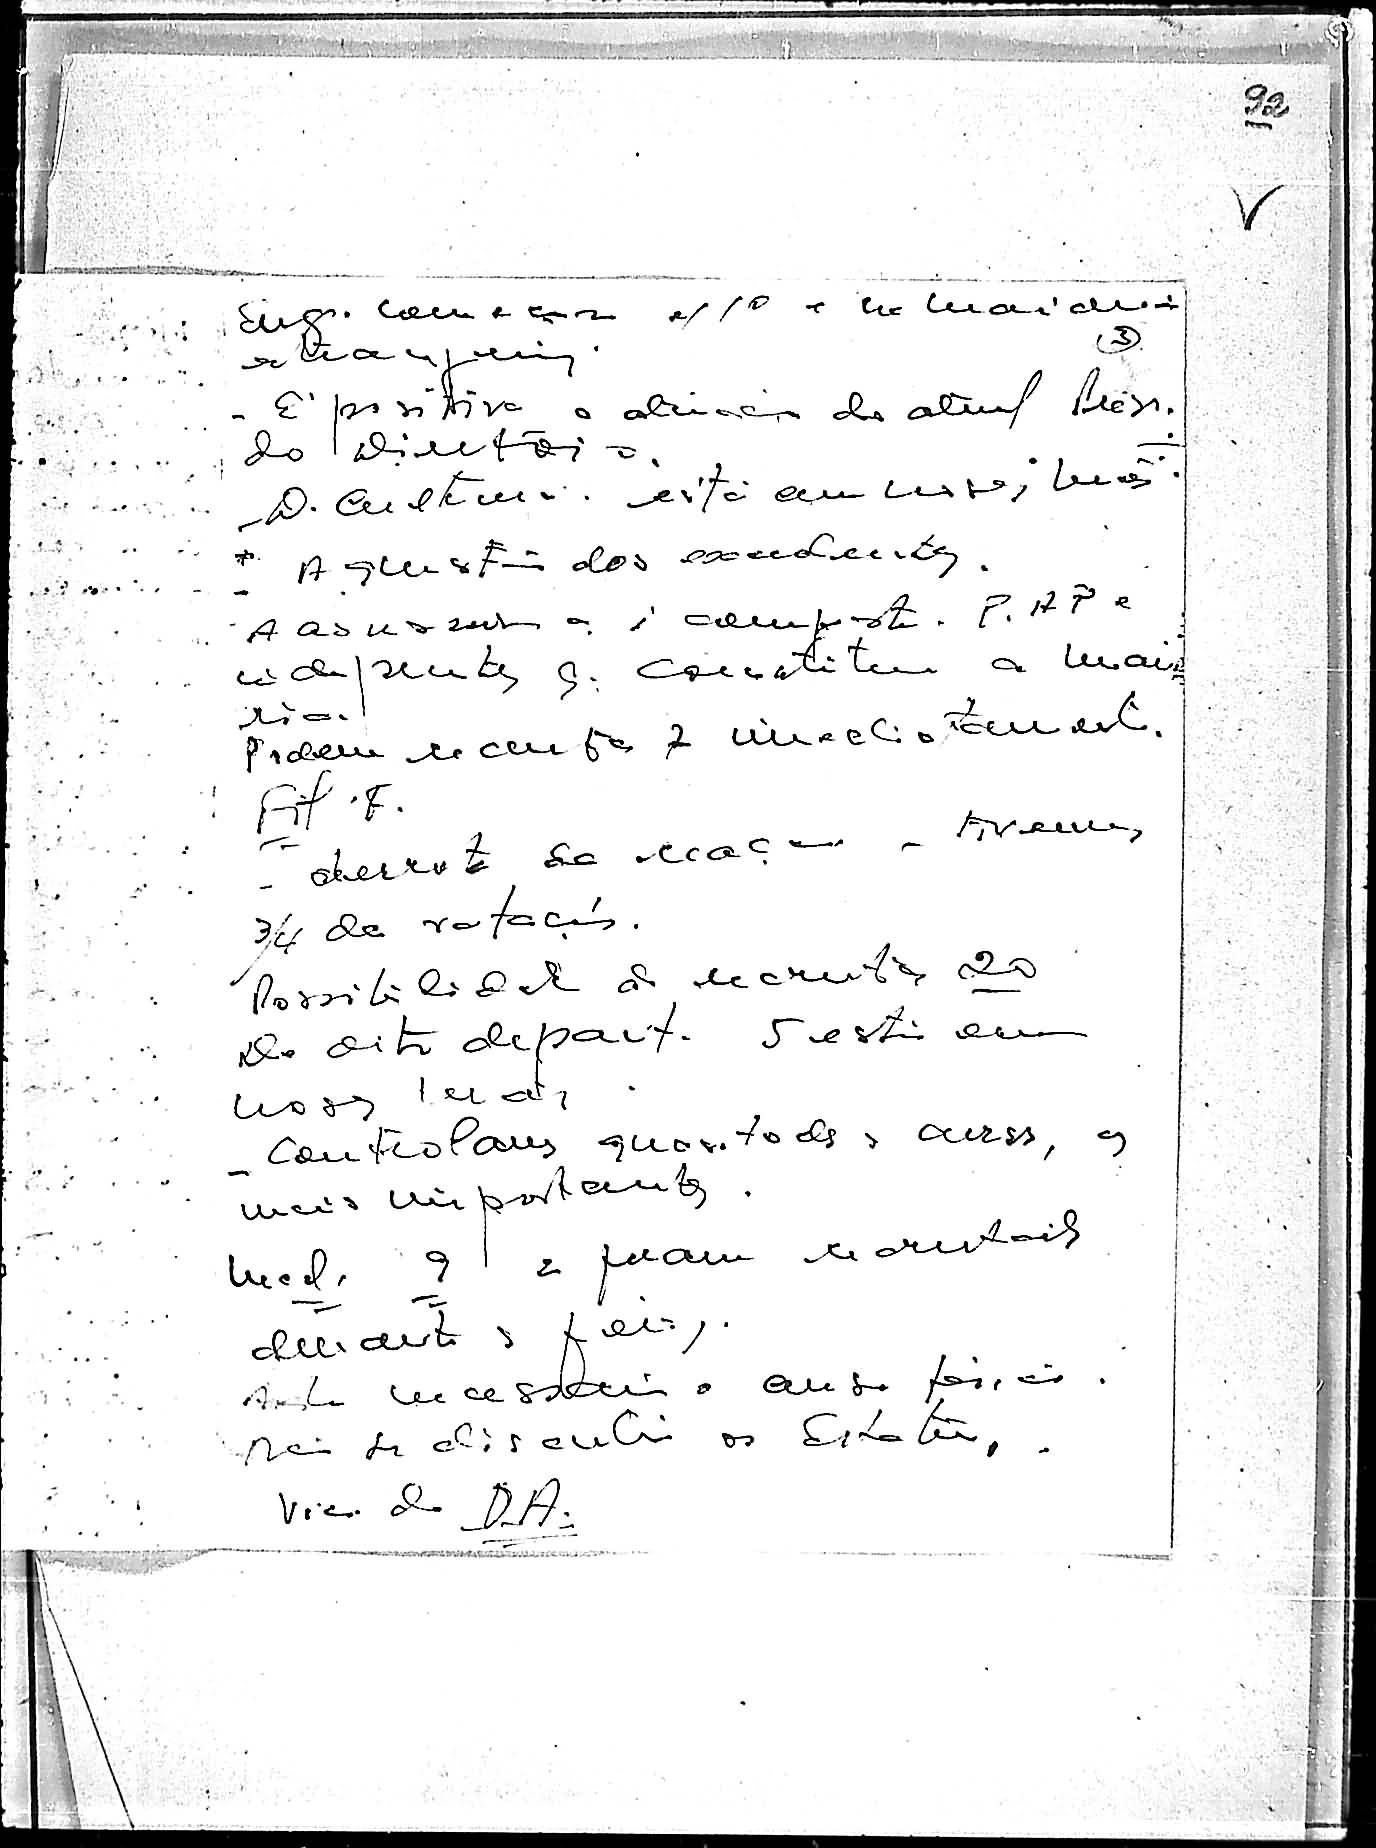 92
Eng. começou c/ 10 e na maioria
③
estrangeiros.
- É positiva a atuação do atual Pres.
do Diretório.
- D. Cultura. está em nossas mãos.
* A questão dos excedentes.
A assessoria é composta. P. AP e
independentes q. constituem a maio
ria.
Podem recrutar 7 imediatamente.
Fil. F.
- derrota da reação - tivemos
3/4 da votação.
Possibilidade de recrutar 20
De oito depart. 5 estão em
nossas mãos.
- Controlamos quase todos os cursos, os
mais importantes.
Med. 9 e foram recrutados
durante as férias.
necessário o curso básico.
Não se discutiu os Estatutos.
Vice do D.A.